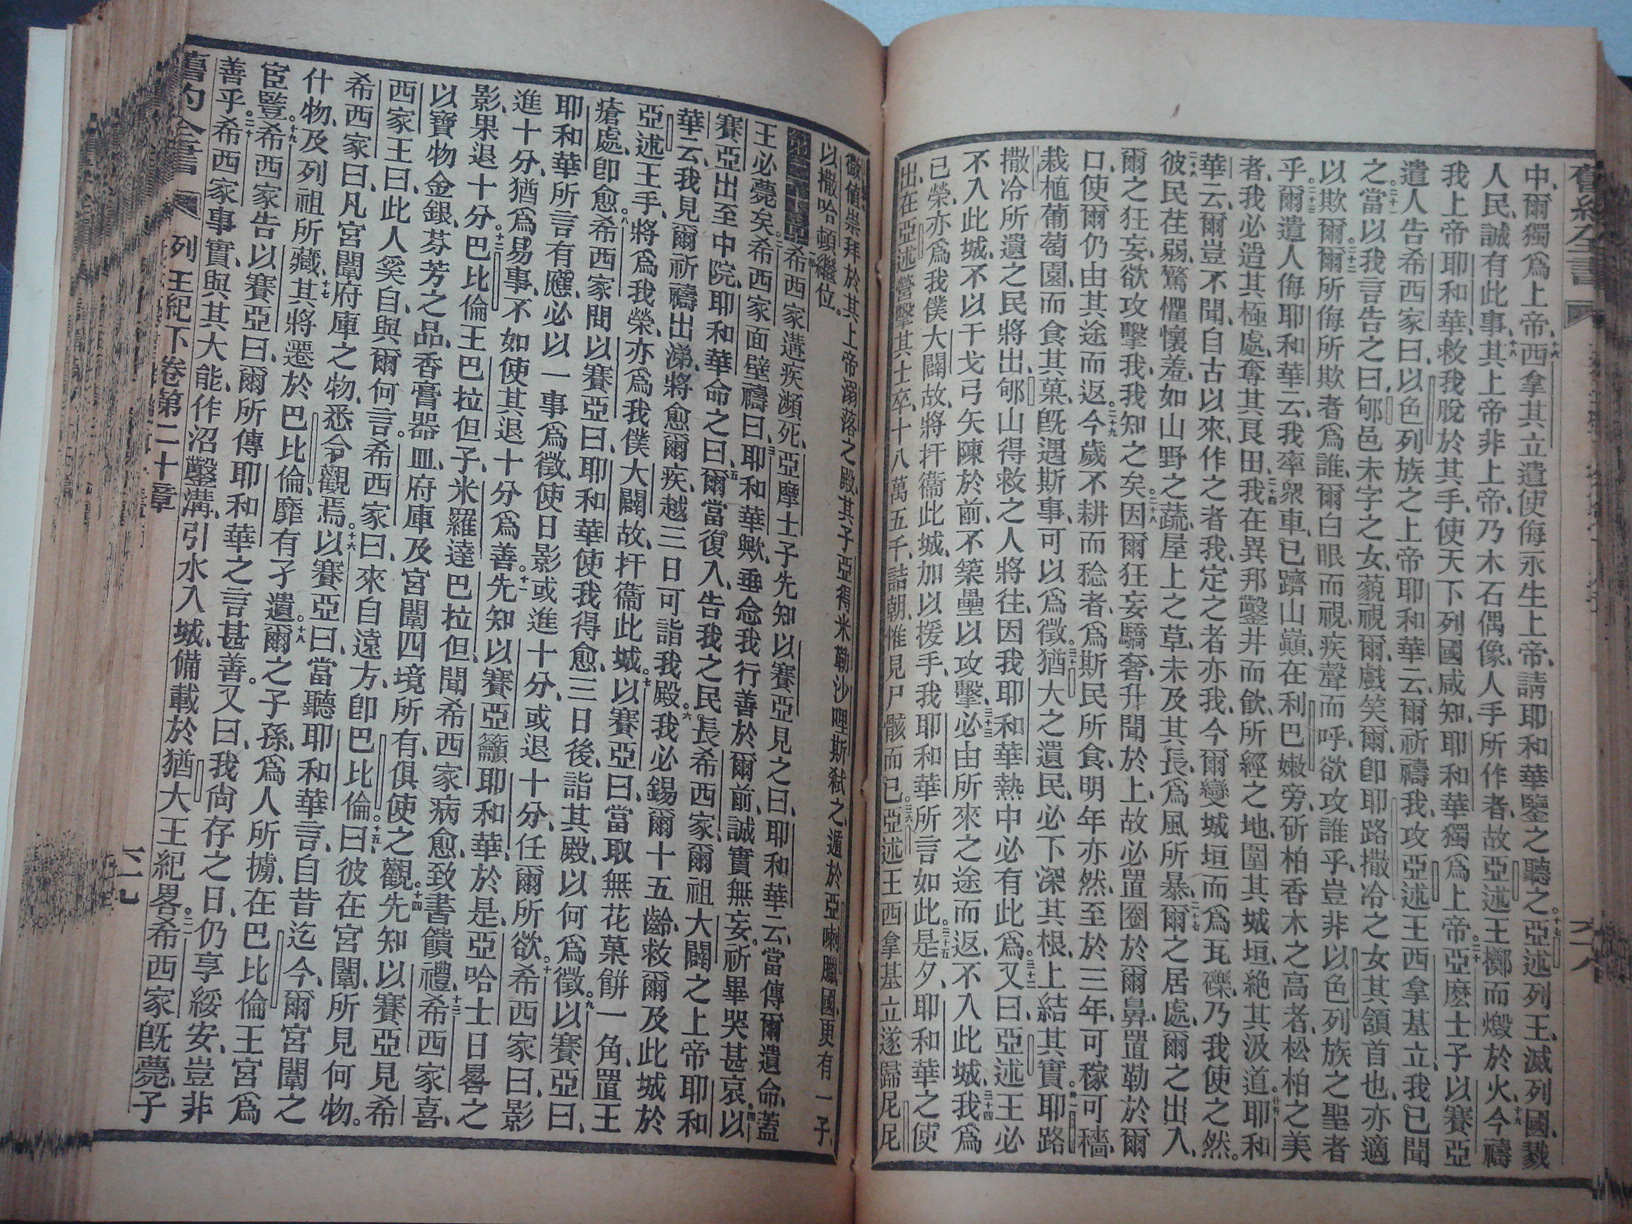 中、爾獨爲上帝、西拿其立遣使侮永生上帝、請耶和華鑒之聽之、亞述列王、滅列國、戮
人民、誠有此事、其上帝非上帝、乃木石偶像、人手所作者、故亞述王擲而燬於火、今禱
我上帝耶和華、救我脫於其手、使天下列國咸知耶和華獨爲上帝、亞麼士子以賽亞
遣人告希西家曰、以色列族之上帝耶和華云、爾祈禱我、攻亞述王西拿基立、我已聞
之、當以我言告之曰、郇邑未字之女、藐視爾、戲笑爾、卽耶路撒冷之女、其頷首也、亦適
以欺爾、爾所侮所欺者爲誰、爾白眼而視、疾聲而呼、欲攻誰乎、豈非以色列族之聖者
乎、爾遣人侮耶和華云、我率衆車、已躋山巔、在利巴嫩旁、斫柏香木之高者、松柏之美
者、我必造其極處、奪其良田、我在異邦鑿井而飮、所經之地、圍其城垣、絕其汲道、耶和
華云、爾豈不聞、自古以來、作之者我、定之者亦我、今爾變城垣而爲瓦礫、乃我使之然。
彼民荏弱、驚懼懷羞、如山野之蔬、屋上之草、未及其長、爲風所暴、爾之居處、爾之出入、
爾之狂妄、欲攻擊我、我知之矣、因爾狂妄驕奢、升聞於上、故必置圈於爾鼻、置勒於爾
口、使爾仍由其途而返、今歲不耕而稔者、爲斯民所食、明年亦然、至於三年、可稼可穡、
栽植葡萄園、而食其菓、旣遇斯事、可以爲徵、猶大之遺民、必下深其根、上結其實、耶路
撒冷所遺之民、將出郇山得救之人將往、因我耶和華熱中、必有此爲、又曰、亞述王必
不入此城、不以干戈弓矢陳於前、不築壘以攻擊、必由所來之途而返、不入此城、我爲
已榮、亦爲我僕大闢、故將扞衞此城、加以援手、我耶和華所言如此、是夕、耶和華之使
出、在亞述營、擊其士卒、十八萬五千、詰朝惟見尸骸而已、亞述王西拿基立遂歸尼尼
微、値崇拜於其上帝溺落之殿、其子亞得米勒沙哩斯弒之、遁於亞喇臘國、更有一子、
以撒哈頓繼位。
第二十章 希西家遘疾瀕死、亞摩士子先知以賽亞見之曰、耶和華云、當傳爾遺命、蓋
王必薨矣、希西家面壁禱曰、耶和華歟、垂念我行善於爾前、誠實無妄、祈畢哭甚哀、以
賽亞出至中院、耶和華命之曰、爾當復入、告我之民長希西家、爾祖大闢之上帝耶和
華云、我見爾祈禱出涕、將愈爾疾、越三日可詣我殿、我必錫爾十五齡、救爾及此城於
亞述王手、將爲我榮、亦爲我僕大闢、故扞衞此城、以賽亞曰、當取無花菓餅一角、置王
瘡處卽愈、希西家問以賽亞曰、耶和華使我得愈、三日後、詣其殿、以何爲徵、以賽亞曰、
耶和華所言有應、必以一事爲徵、使日影或進十分、或退十分、任爾所欲、希西家曰、影
進十分、猶爲易事、不如使其退十分爲善、先知以賽亞籲耶和華、於是亞哈士日晷之
影、果退十分、巴比倫王巴拉但子米羅達巴拉但、聞希西家病愈、致書饋禮、希西家喜、
以寶物金銀、芬芳之品、香膏器皿、府庫、及宮闈四境所有、俱使之觀、先知以賽亞見希
西家王曰、此人奚自、與爾何言、希西家曰、來自遠方、卽巴比倫、曰、彼在宮闈、所見何物。
希西家曰、凡宮闈府庫之物、悉令觀焉、以賽亞曰、當聽耶和華言、自昔迄今、爾宮闈之
什物、及列祖所藏、其將遷於巴比倫、靡有孑遺、爾之子孫、爲人所擄、在巴比倫王宮爲
宦豎、希西家告以賽亞曰、爾所傳耶和華之言甚善。又曰、我尙存之日、仍享綏安、豈非
善乎、希西家事實、與其大能、作沼鑿溝、引水入城、備載於猶大王紀畧、希西家旣薨、子
舊約全書 列王紀下卷第二十章